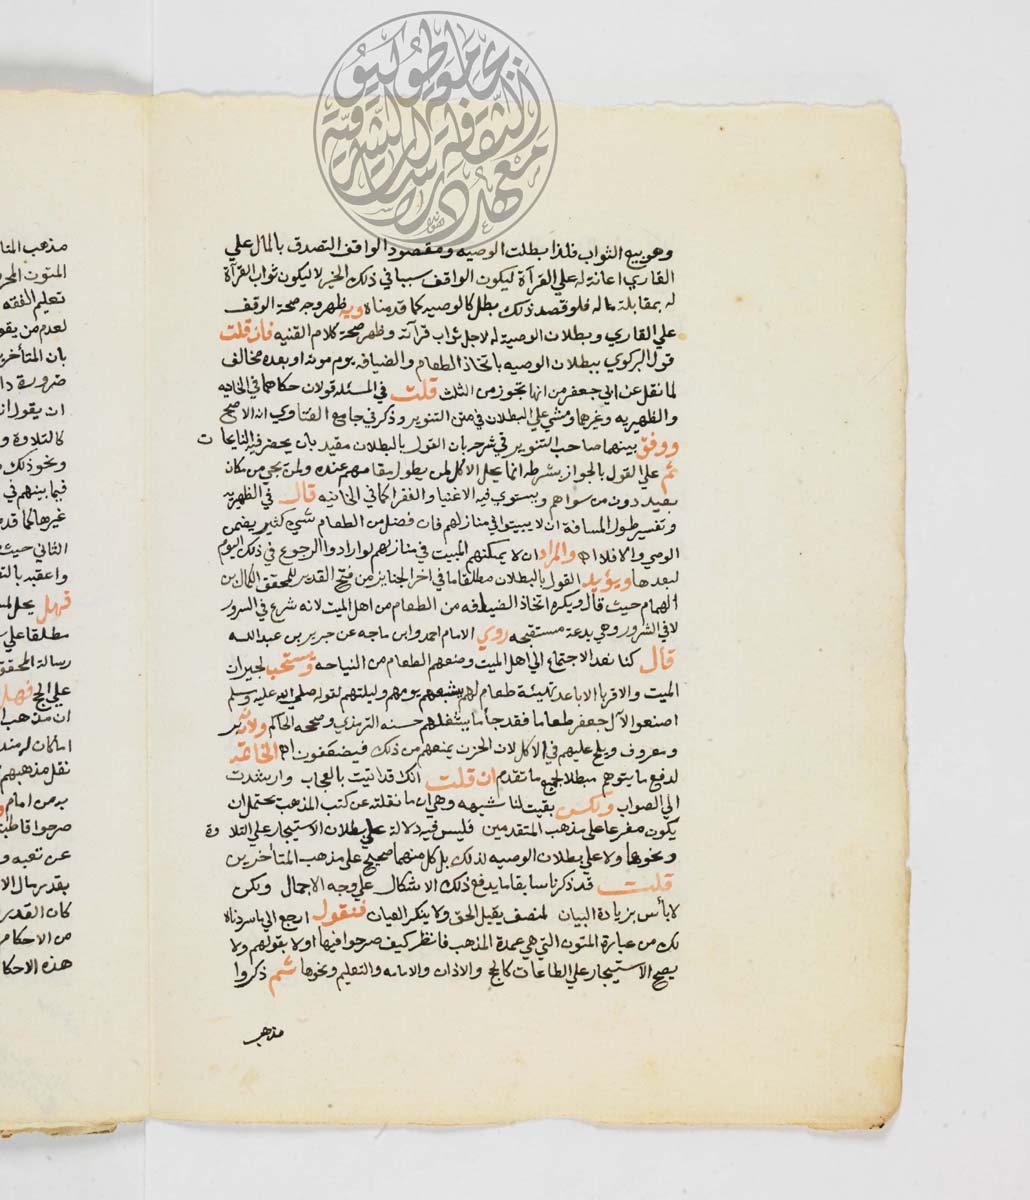 معهد الثقافة والدراسات الشرقية
جامعة طوكيو
وهو بيع الثواب فلذا بطلت الوصيه ومقصود الواقف التصدق بالمال علي
القاري اعانة له علي القرآة ليكون الواقف سببا في ذلك الخير لا ليكون ثواب القرآة
له بمقابلة ماله فلو قصد ذلك بطل كالوصيه كما قدمناه وبه ظهر وجه صحة الوقف
علي القاري وبطلان الوصية له لاجل ثواب قرآته وظهر صحة كلام القنيه فان قلت
قول البركوي ببطلان الوصيه باتخاذ الطعام والضيافه يوم موته او بعده مخالف
لما نقل عن ابي جعفر من انها تجوز من الثلث قلت في المسئله قولان حكاهما في الخانيه
والظهيريه وغيرهما ومشي علي البطلان في متن التنوير وذكر في جامع الفتاوي انه الاصح
ووفق بينهما صاحب التنوير في شرحه بان القول بالبطلان مقيد بان يحضر فيه النايحات
ثم علي القول بالجواز بشرطه انما يحل الاكل لمن يطول مقامهم عنده ولمن يجي من مكان
بعيد دون من سواهم ويستوي فيه الاغنيا والفقرا كما في الخانيه قال في الظهيريه
وتفسير طول المسافة ان لا يبيتوا في منازلهم فان فضل من الطعام شي كثير يضمن
الوصي والا فلا اه والمراد ان لا يمكنهم المبيت في منازلهم لو ارادوا الرجوع في ذلك اليوم
لبعدها ويؤيد القول بالبطلان مطلقا ما في اخر الجنايز من فتح القدير للمحقق الكمال بن
الهمام حيث قال ويكره اتخاذ الضيافه من الطعام من اهل الميت لانه شرع في السرور
لا في الشرور وهي بدعة مستقبحه روي الامام احمد وابن ماجه عن جرير بن عبدالله
قال كنا نعد الاجتماع الي اهل الميت وصنعهم الطعام من النياحه ويستحب لجيران
الميت والاقربا الاباعد تهيئة طعام لهم يشبعهم يومهم وليلتهم لقوله صلي الله عليه وسلم
اصنعوا لآل جعفر طعاما فقد جأ ما يشغلهم حسنه الترمذي وصححه الحاكم ولانه بر
ومعروف ويلح عليهم في الاكل لان الحزن يمنعهم من ذلك فيضعفون اه الخاتمة
لدفع ما يتوهم مبطلا لجميع ما تقدم ان قلت انك قد اتيت بالعجاب وارشدت
الي الصواب ولكن بقيت لنا شبهه وهي ان ما نقلته عن كتب المذهب يحتمل ان
يكون مفرعا علي مذهب المتقدمين فليس فيه دلالة علي بطلان الاستيجار علي التلاوة
ونحوها ولا علي بطلان الوصيه لذلك بل كل منهما صحيح علي مذهب المتأخرين
قلت قد ذكرنا سابقا ما يدفع ذلك الاشكال علي وجه الاجمال ولكن
لا بأس بزيادة البيان لمنصف يقبل الحق ولا ينكر العيان فنقول ارجع الي ما سردناه
لك من عبارة المتون التي هي عمدة المذهب فانظر كيف صرحوا فيها اولا بقولهم ولا
يصح الاستيجار علي الطاعات كالحج والاذان والامامه والتعليم ونحوها ثم ذكروا
مذهب
مذهب المتا
المتون المحر
تعليم الفقه
لعدم من يقو
بان المتأخرين
ضرورة دا
ان يقول ان
كالتلاوة و
ونحو ذلك
فيما بينهم في
غيرها كما قدم
الثاني حيث
واعقبه بالت
فهل يحل لمس
مطلقا علي
رسالة المحقق
علي الحج فهل
ان مذهب ا
نقل مذهبهم
به من امام و
صرحوا قاطبة
عن تعبه و
بقدر مال الا
كان القدر
من الاحكام
هذه الاحكا